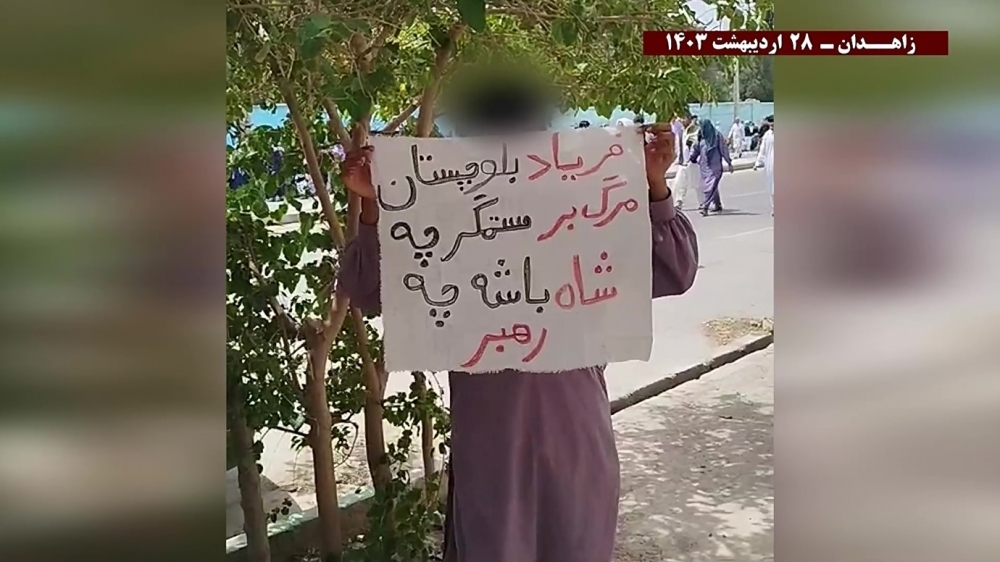 زاهدان ـ ۲۸ اردیبهشت ۱۴۰۳
فریاد بلوچستان
مرگ بر ستمگر چه
شاه باشه چه
رهبر